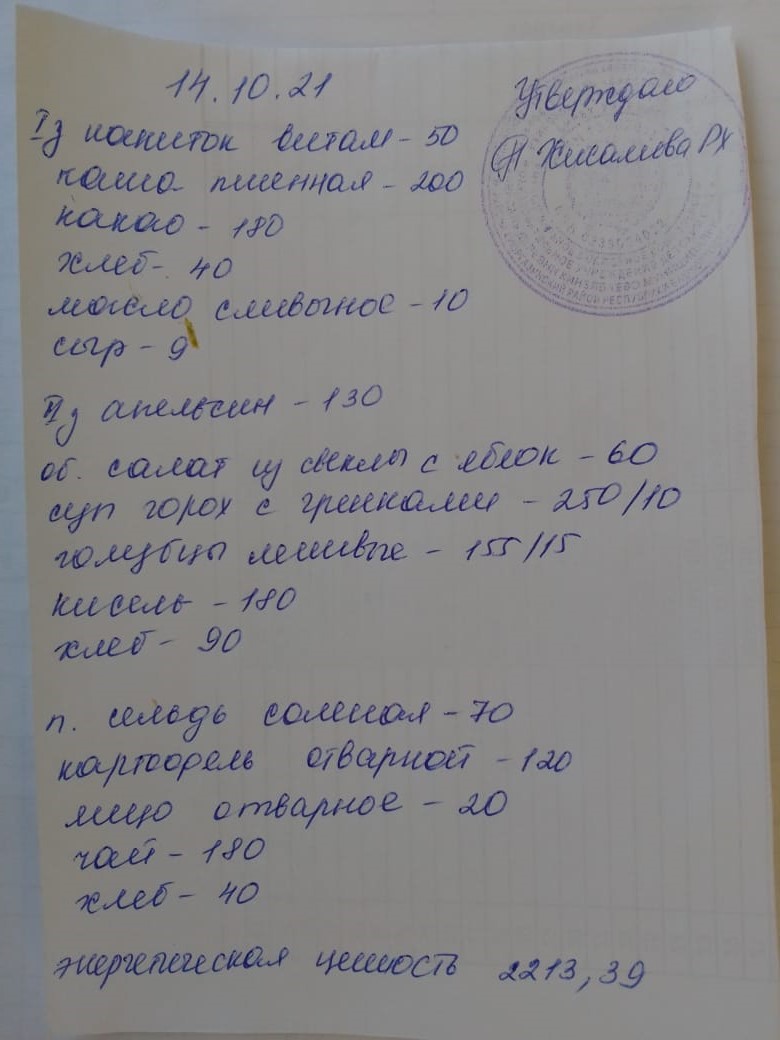 14.10.21
Утверждаю
Iз напиток витам - 50
РХ
каша пшенная - 200
какао - 180
хлеб - 40
масло сливочное - 10
сыр - 9
IIз апельсин - 130
об. салат из свеклы с яблок - 60
суп горох с гренками - 250/10
голубцы ленивые - 155/15
кисель - 180
хлеб - 90
п. сельдь соленая - 70
картофель отварной - 120
яйцо отварное - 20
чай - 180
хлеб - 40
энергетическая ценность 2213,39